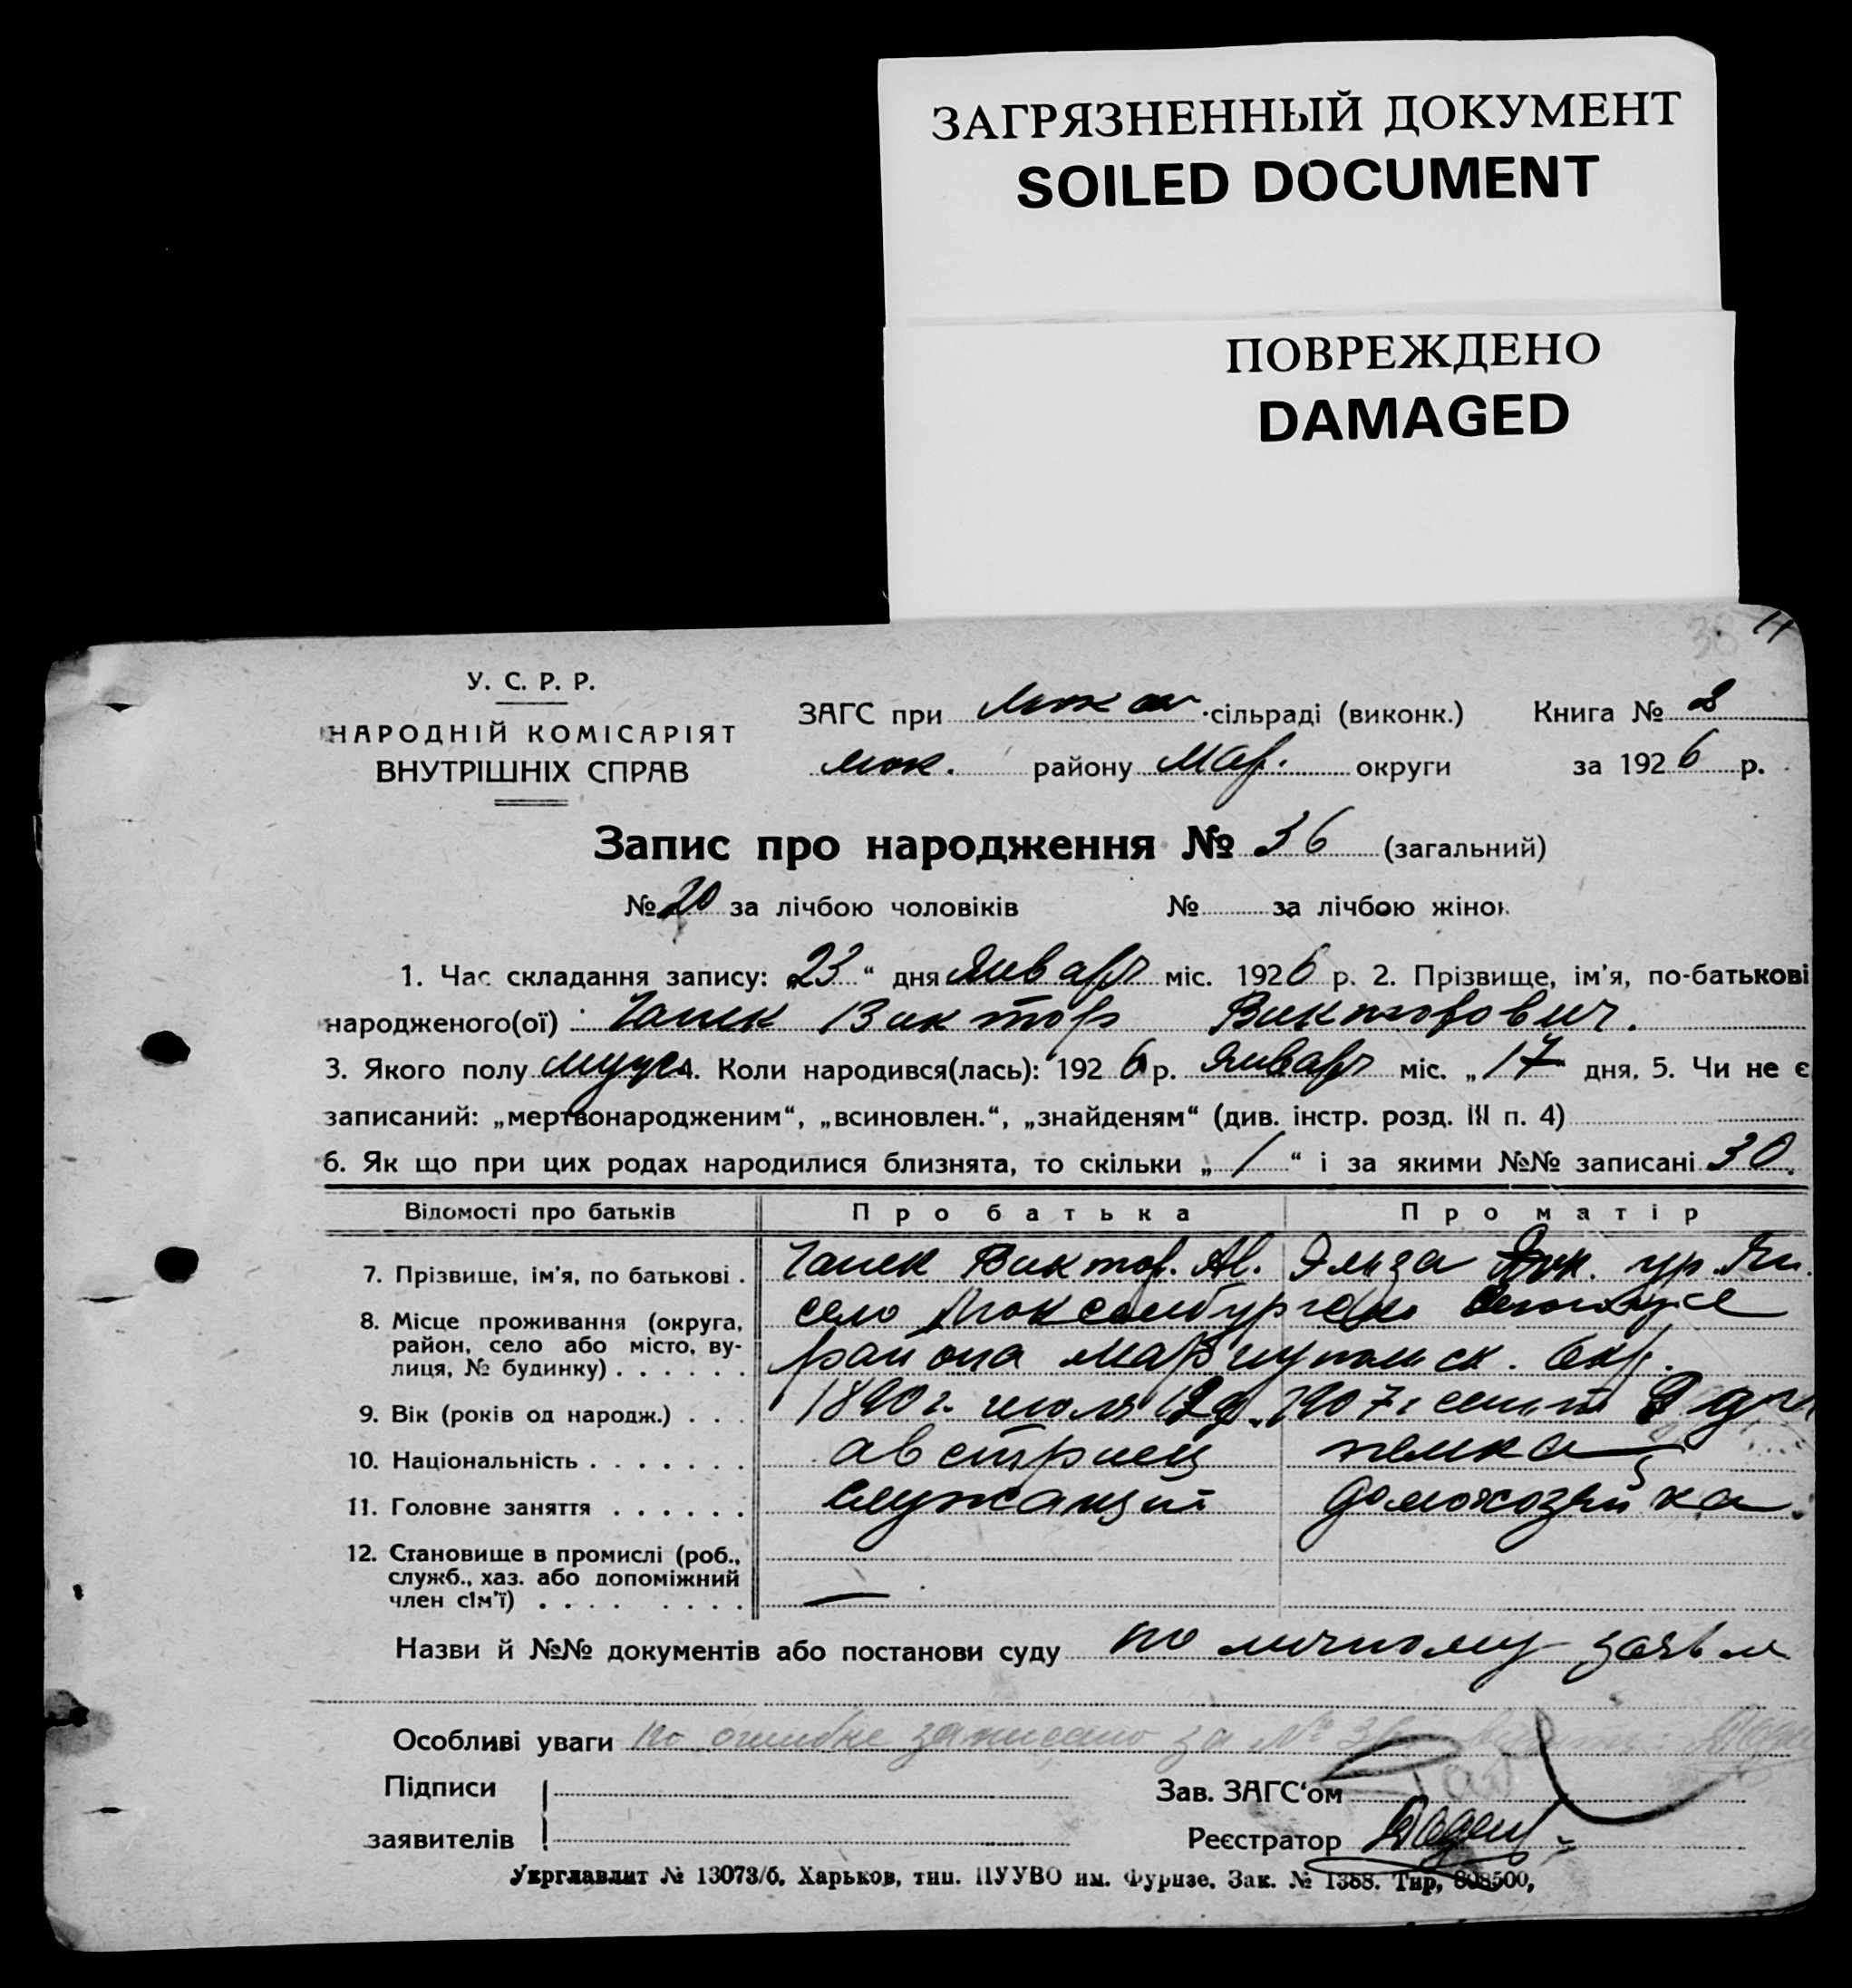 ЗАГРЯЗНЕННЫЙ ДОКУМЕНТ
SOILED DOCUMENT
ПОВРЕЖДЕНО
DAMAGED
11
У. С. Р. Р.
НАРОДНІЙ КОМІСАРІЯТ
ВНУТРІШНІХ СПРАВ
ЗАГС при сільраді (виконк.) Книга №
люк. району Мар. округи за 1926 р.
Запис про народження № 36 (загальний)
№ 20 за лічбою чоловіків № за лічбою жінок
1. Час складання запису: „23“ дня Январь міс. 1926 р. 2. Прізвище, ім'я, по-батькові
народженого(ої) Чапек Виктор Викторович.
3. Якого полу 4. Коли народився(лась): 1926 р. Январь міс. „17 дня. 5. Чи не є
записаний: „мертвонародженим“, „всиновлен.“, „знайденям“ (див. інстр. розд. III п. 4)
6. Як що при цих родах народилися близнята, то скільки „1“ і за якими №№ записані 30.
Відомості про батьків Про батька Про матір
7. Прізвище, ім'я, по батькові . Чапек Виктор. Ав. Эльза
8. Місце проживання (округа, район, село або місто, вулиця, № будинку) . . . . . . село Люксембург
района Мариупольск. Окр.
9. Вік (років од народж.) . . . 1890 г. июля 1907 г. сент.
10. Національність . . . . . . . австриец немка
11. Головне заняття . . . . . . служащий домохозяйка.
12. Становище в промислі (роб., служб., хаз. або допоміжний член сім'ї) . . . . . . . . —
Назви й №№ документів або постанови суду по личному заявл
Особливі уваги по ошибке записано за №
Підписи
заявителів
Зав. ЗАГС'ом
Реєстратор
Укрглавлит № 13073/б. Харьков, тип. ПУУВО им. Фурнзе. Зак. № 1388. Тир, 808500,